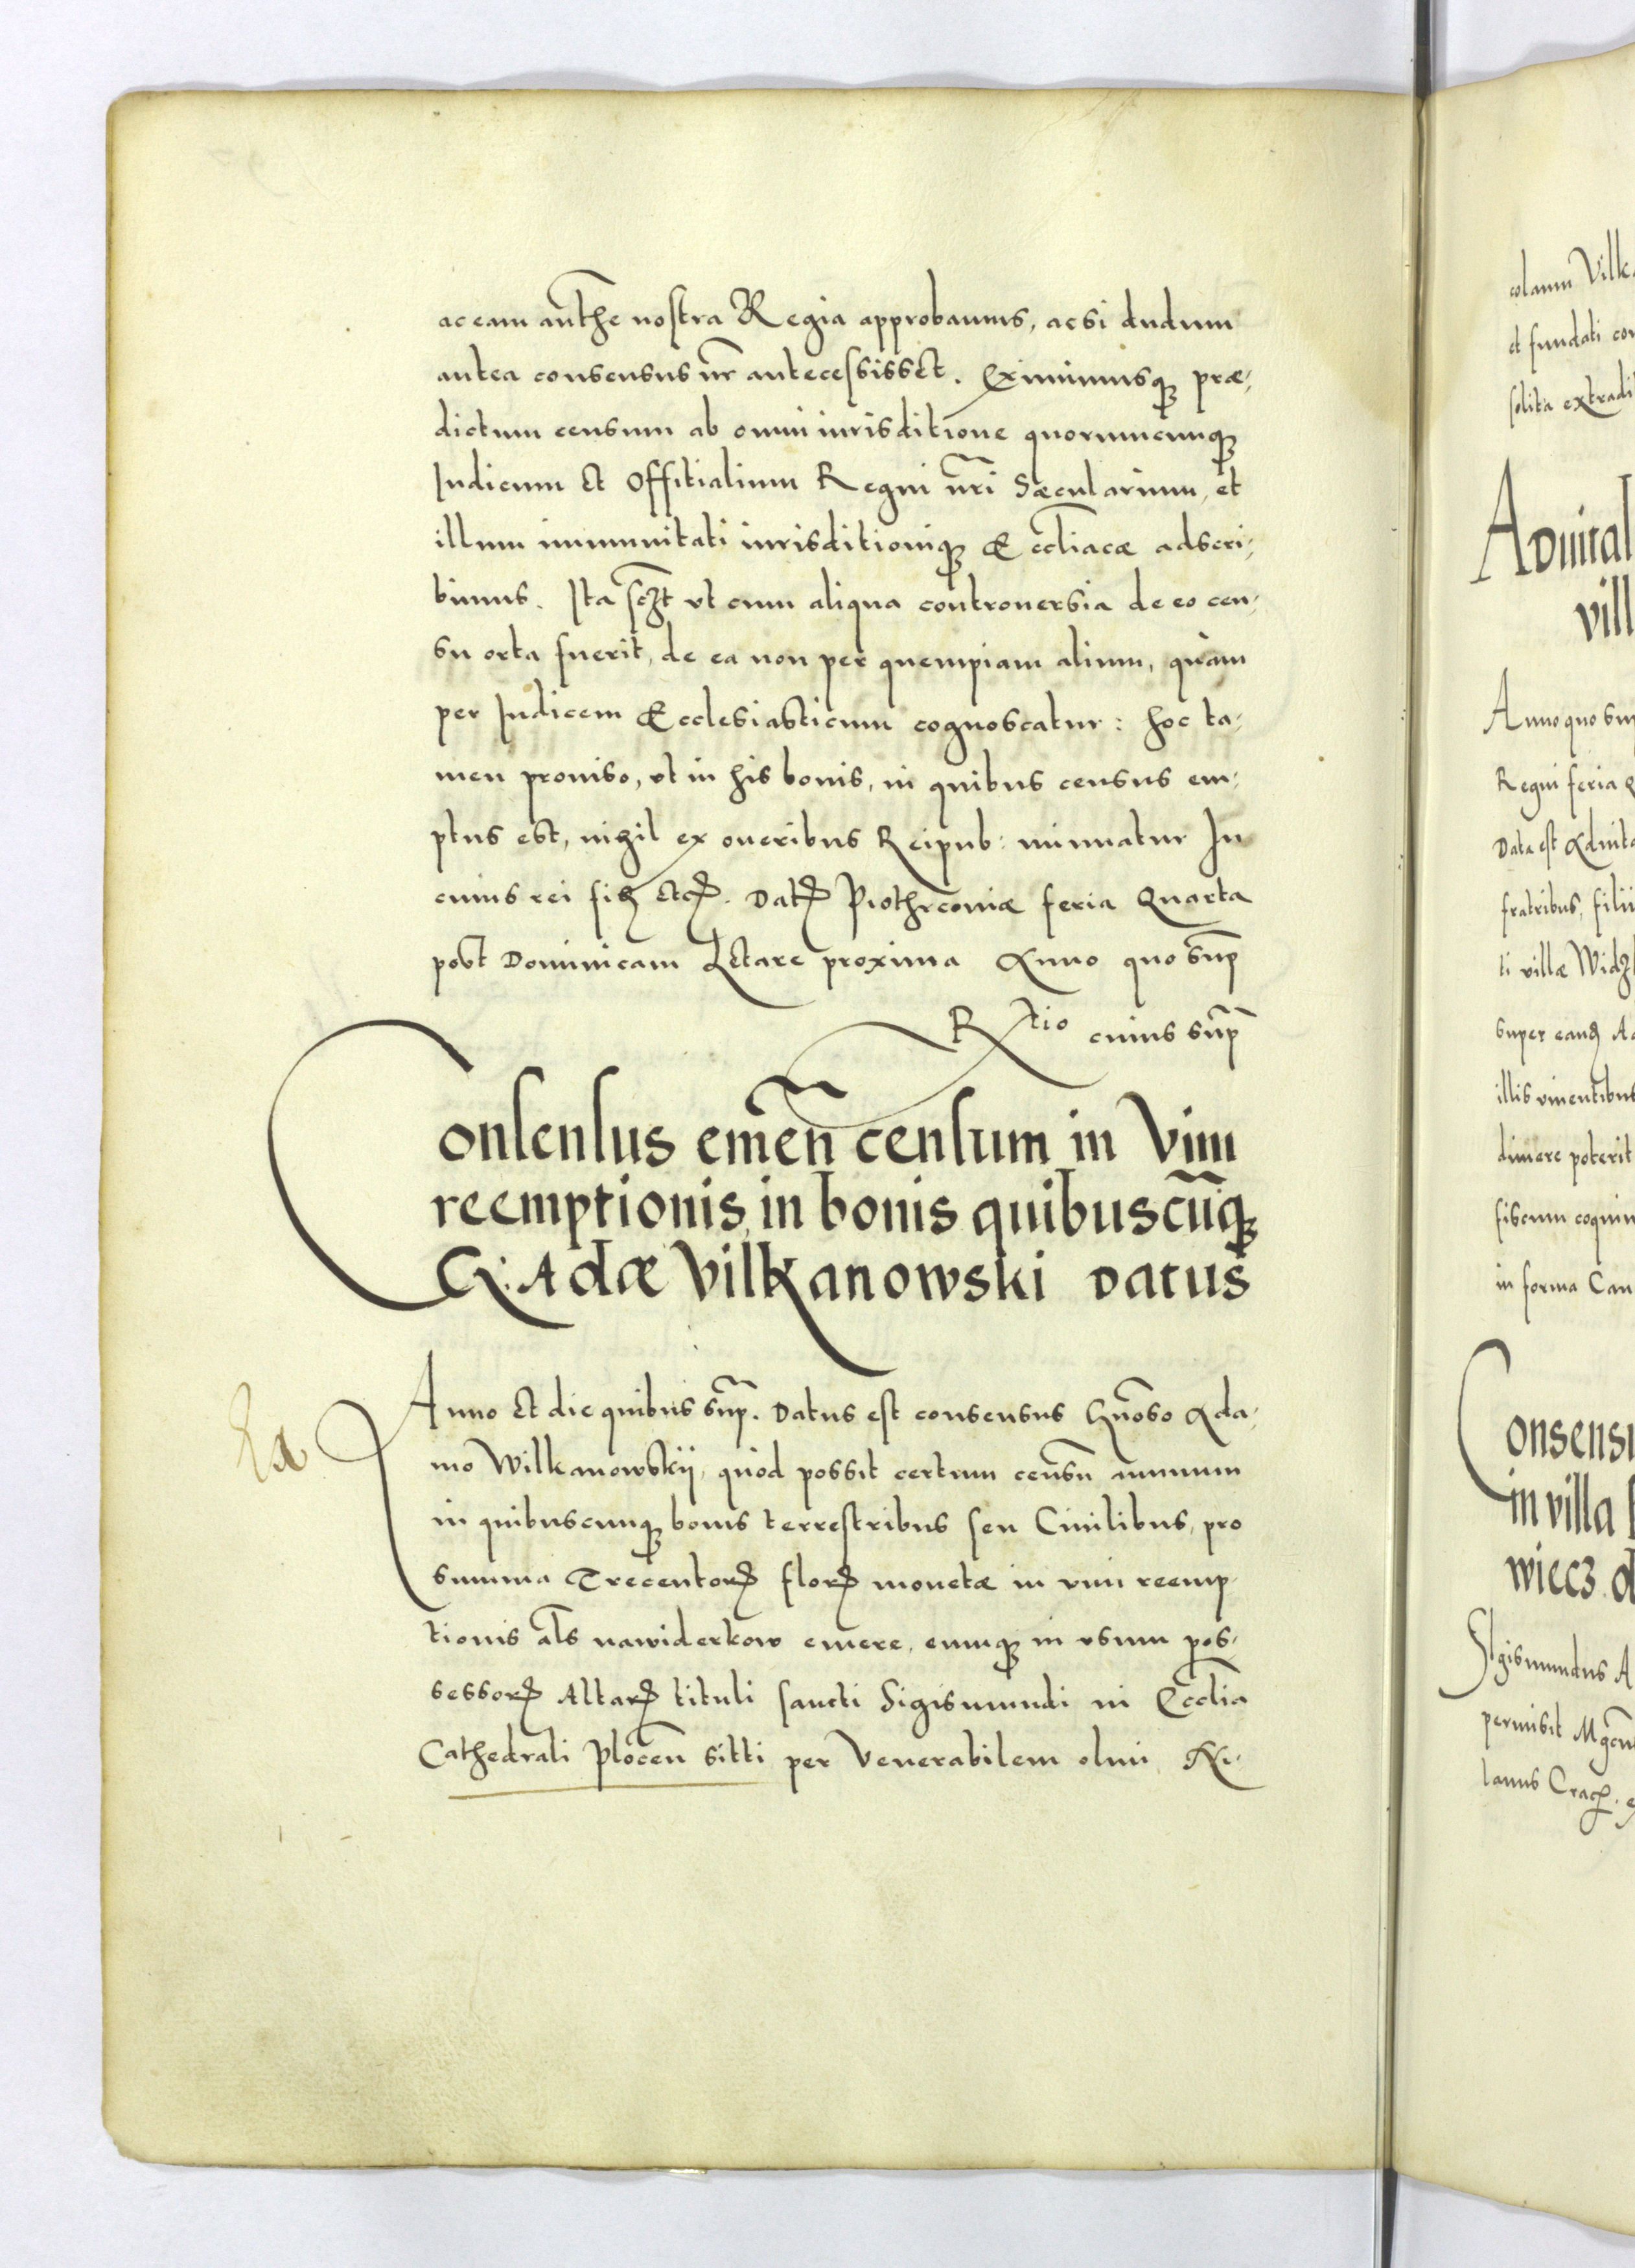 ac eam authē nostra Regia approbamus, acsi dudum
antea consensus nr̄ antecessisset. Eximimusq̃ præ-
dictum censum ab omni iurisditione quorumcumq̃
Iudicum et Offitialium Regni nr̄i Sæcularium, et
illum immunitati iurisditioniq̃ Eccl̄iacæ adscri-
bimus. Ita scz̄t vt cum aliqua controuersia de eo cen-
su orta fuerit, de ea non per quempiam alium, quàm
per Iudicem Ecclesiasticum cognoscatur: hoc ta-
men prouiso, vt in his bonis, in quibus census em-
ptus est, nihil ex oneribus Reipub: minuatur In
cuius rei fiꝫ etcꝭ. Datꝭ Piothrcouiæ feria Quarta
post Dominicam Lętare proxima Anno quo sup̄
Rtio cuius sup̄
Consensus emen̄ censum in Vim
reemptionis in bonis quibuscūq̃
G: Adæ Vilkanowski datus
Ex
Anno et die quibus sup̄. Datus est consensus Gn̄oso Ada-
mo Wilkanowskij, quòd possit certum censū annuum
in quibuscumq̃ bonis terrestribus seu Ciuilibus, pro
summa Trecentorꝭ florꝭ monetæ in vim reemp-
tionis al̄s nawiderkow emere, eumq̃ in vsum pos-
sessorꝭ Altarꝭ tituli sancti Sigismundi in Eccl̄ia
Cathedrali Plocen̄ sitti per Venerabilem olim Ni-
colaum Vilk
et fundati con
solita extradi
Aduital
vill
Anno quo sup
Regni feria Q
Data est Aduita
fratribus, filii
ti villæ Widz
super eandꝭ Ad
illis viuentibus
dimere poterit
fiscum coquin
in forma Can
Consensu
in villa
wiecz d
Sigismundus A
permisit Mgcn̄
lanus Cracꝭ. e